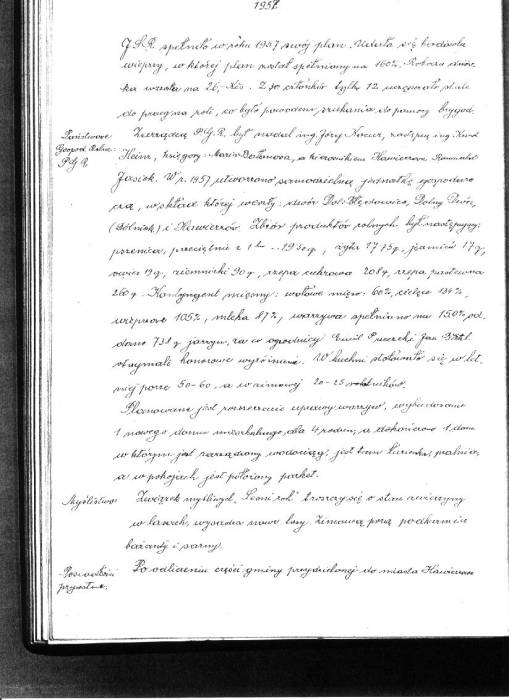 1957.
J.S.R. spełniło w roku 1957 swój plan. Udała się hodowla
wieprzy, w której plan został spełniony na 160%. Robocza
ka wzrosła na 26,- Kčs. Z 30 członków tylko 12 uczęszczało stale
do pracy na roli, co było powodem szukania do pomocy brygad.
Państwowe
Gospod. Rolne.
P.G.R.
Zarządcą P.G.R. był nadal ing. Jerzy Kocur, zastępcą ing. Kurd
Heinz, księgową Maria a kierownikiem Hawierzowa Romuald
Jasiok. W r. 1957 utworzono samodzielną jednostkę gospodar
czą, w skład której weszły: dwór Dol. Błędowice, Dolny Dwór,
i Hawierzów. Zbiór produktów rolnych był następujący:
pszenica, przeciętnie z 1 19.50 q, żyto 17.75 q, jęczmień 17 q,
owies 19 q, ziemniaki 90 q, rzepa cukrowa 208 q, rzepa pastewna
260 q. Kontyngent mięsny: wołowe mięso 60%, cielęce 134%,
wieprzowe 105%, mleka 87%, warzywa spełniono na 150%, od
dano 738 q jarzyn, za co ogrodnicy Emil i Jan
otrzymali honorowe wyróżnienie. W kuchni stołowało się w let
niej porze 50-60, a w zimowej 20-25 robotników.
Planowane jest rozszerzenie uprawy warzyw, wybudowanie
1 nowego domu mieszkalnego dla 4 rodzin, a dokończono 1 dom
w którym jest zarządzony wodociąg, jest tam łazienka, pralnia,
a w pokojach jest położony parket.
Myślistwo
Związek myśliwych "Leśni roh" troszczy się o stan zwierzyny
w lasach, wysadza nowe lasy. Zimową porą podkarmia
bażanty i sarny.
Posiadłości
prywatne.
Po odliczeniu części gminy przydzielonej do miasta Hawierzowa